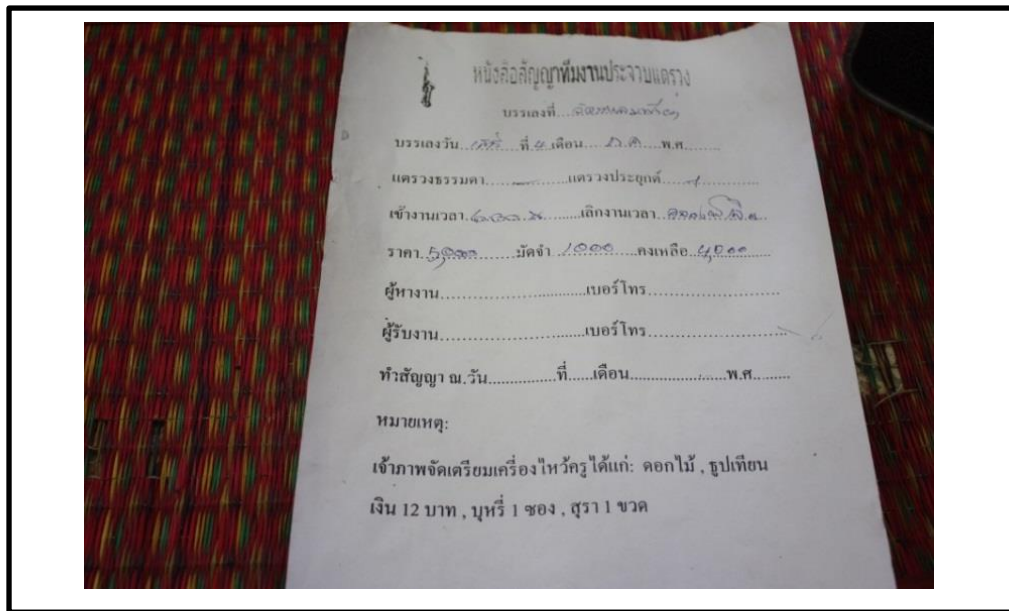 หนังสือสัญญาทีมงานประจาบแตรวง
บรรเลงที่....
บรรเลงวัน...เสาร์...ที่.4.เดือน.....ต.ค.....พ.ศ........
แตรวงธรรมดา..................แตรวงประยุกต์....................
เข้างานเวลา...................เลิกงานเวลา....................
ราคา..5,000.......มัดจำ...1000....คงเหลือ..4,000...........
ผู้หางาน................................เบอร์โทร........................
ผู้รับงาน................................เบอร์โทร..........................
ทำสัญญา ณ.วัน...............ที่......เดือน.......................พ.ศ.........
หมายเหตุ:
เจ้าภาพจัดเตรียมเครื่องไหว้ครูได้แก่: ดอกไม้ , ธูปเทียน
เงิน 12 บาท , บุหรี่ 1 ซอง , สุรา 1 ขวด